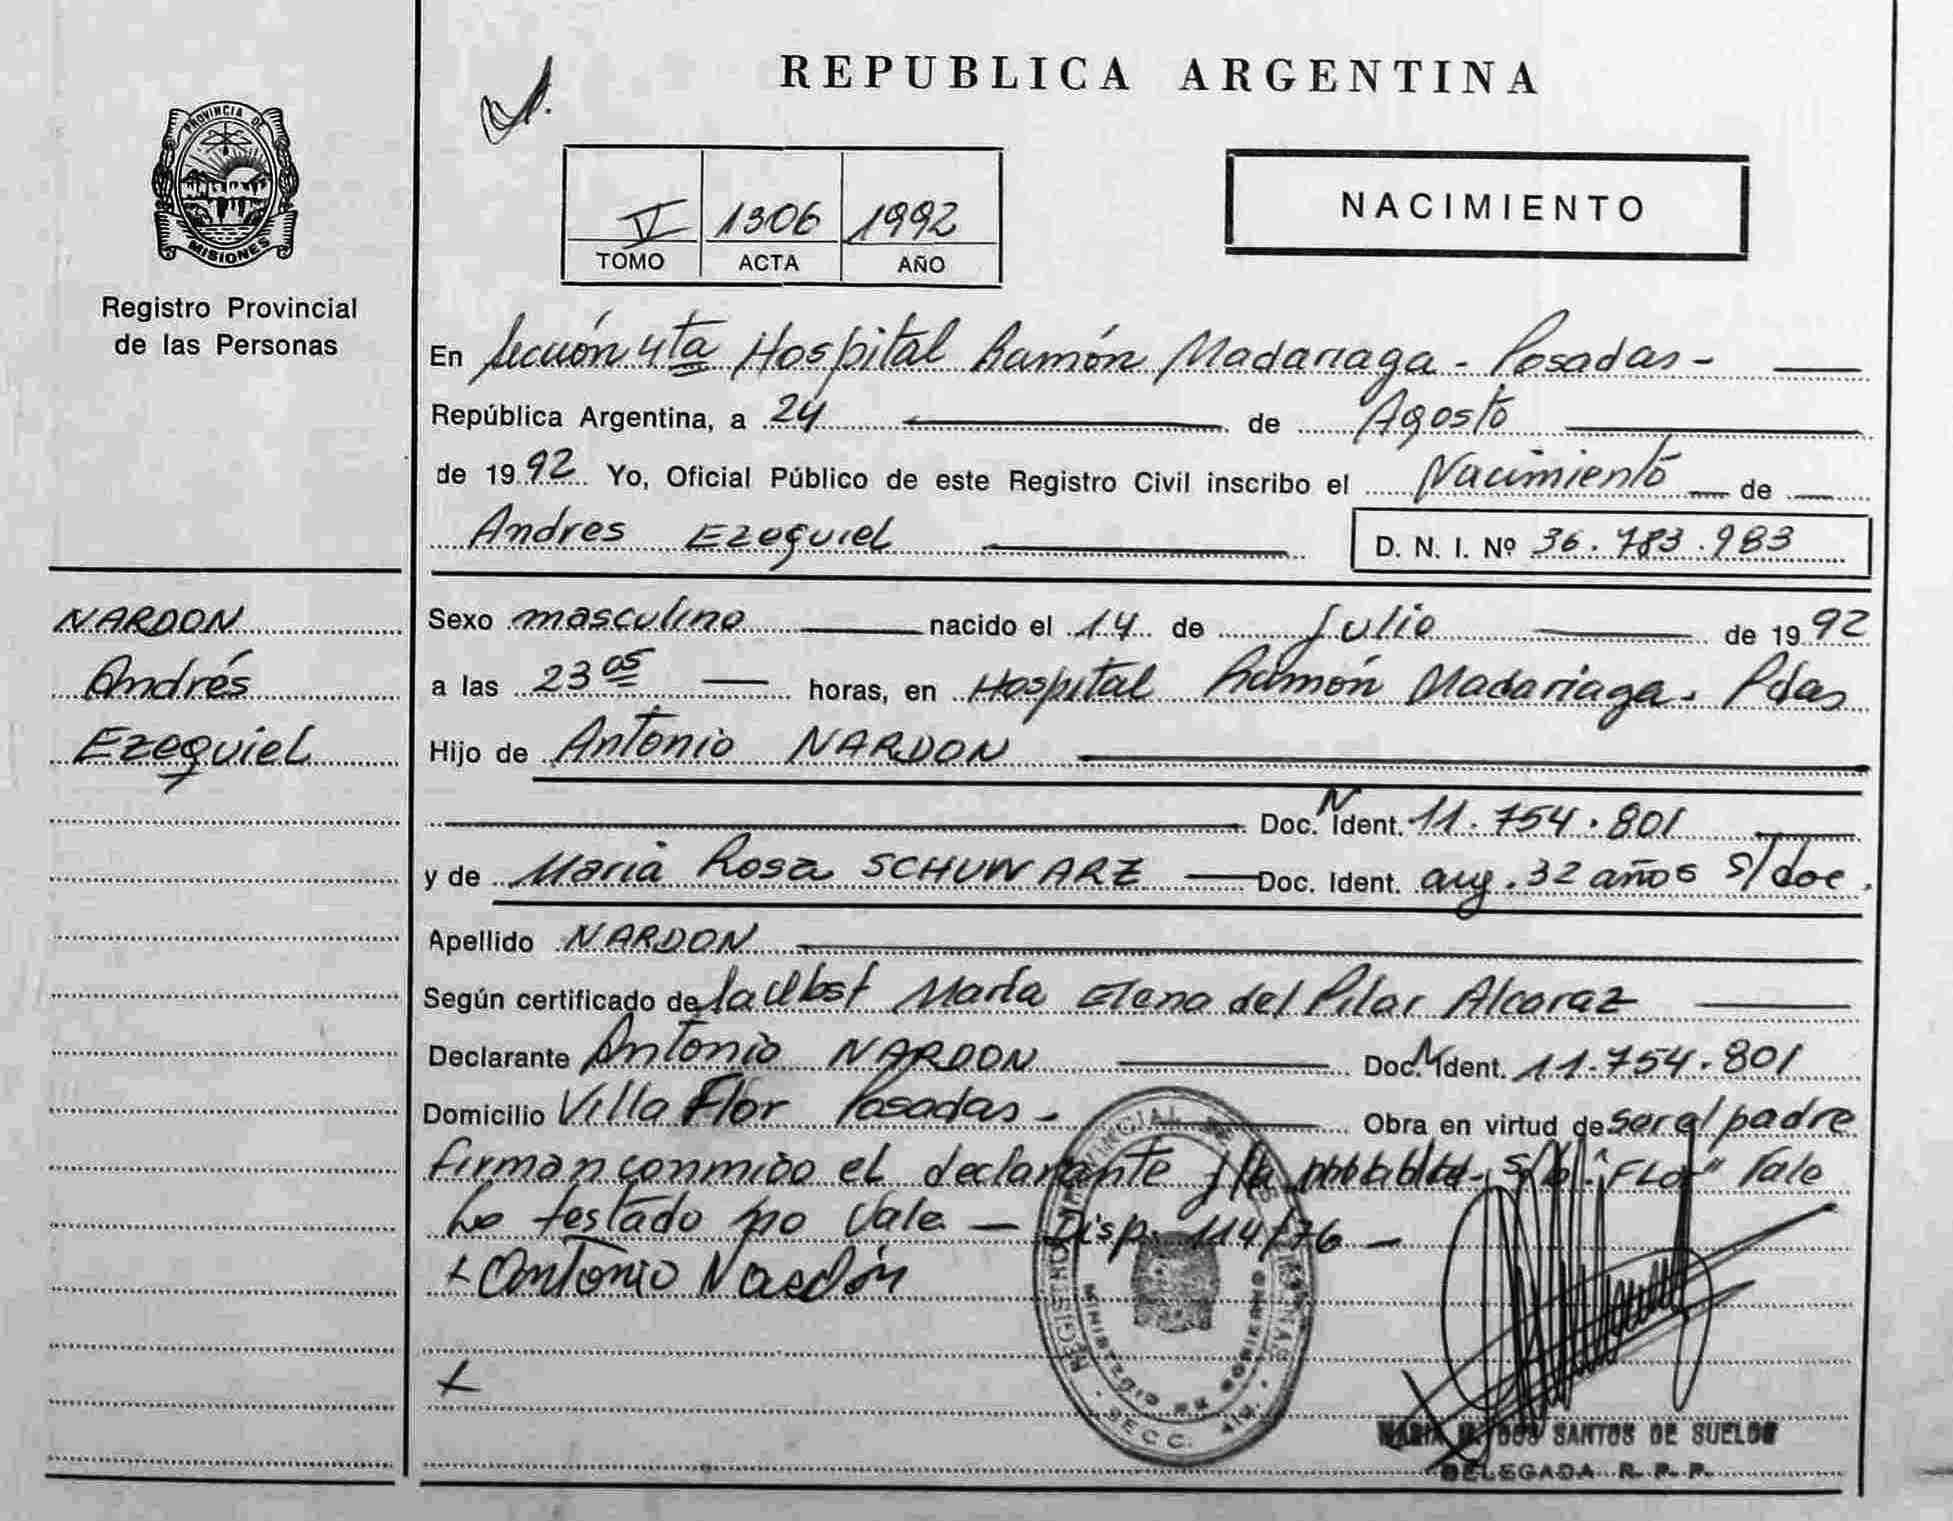 PROVINCIA DE
MISIONES
Registro Provincial
de las Personas
NARDON
Andrés
Ezequiel
REPUBLICA ARGENTINA
V 1306 1992
TOMO ACTA AÑO
NACIMIENTO
En Sección 4ta Hospital Ramón Madariaga - Posadas -
República Argentina, a 24 de Agosto
de 1992 Yo, Oficial Público de este Registro Civil inscribo el Nacimiento de
Andres Ezequiel D. N. I. Nº 36.783.983
Sexo masculino nacido el 14 de Julio de 1992
a las 23 05 horas, en Hospital Ramón Madariaga. Pdas
Hijo de Antonio NARDON
Doc. N Ident. 11.754.801
y de Maria Rosa SCHUWARZ Doc. Ident. arg. 32 años s/doc.
Apellido NARDON
Según certificado de la Obst María Elena del Pilar Alcaraz
Declarante Antonio NARDON Doc. N Ident. 11.754.801
Domicilio Villa Flor Posadas - Obra en virtud de ser el padre
firman conmigo el declarante y la S/b. "FLOR" Vale
Lo testado no vale - Disp. 114/76 -
x Antonio Nardón
x
MINISTERIO DE GOBIERNO
SECC. 4ta.
MARIA DOS SANTOS DE SUELDO
DELEGADA R. P. P.